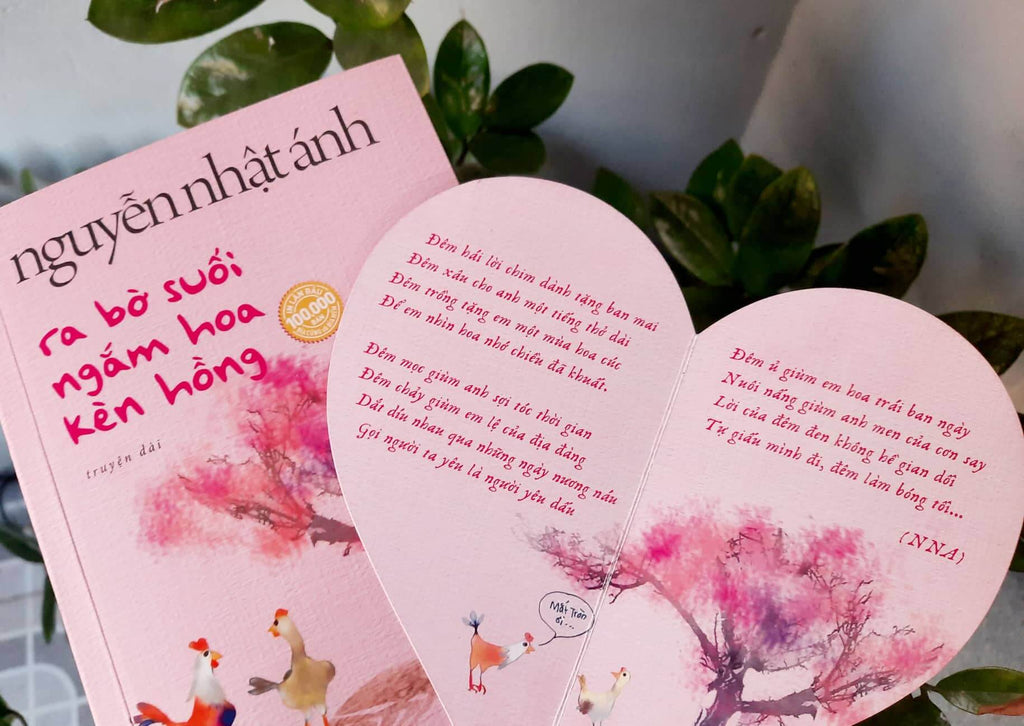 nguyễn nhật ánh
ra bờ suối
ngắm hoa
kèn hồng
truyện dài
IN LẦN ĐẦU
100.000
BẢN
Đêm hái lời chim dánh tặng ban mai
Đêm xâu cho anh một tiếng thở dài
Đêm trồng tặng em một mùa hoa cúc
Để em nhìn hoa nhớ chiều đã khuất.
Đêm mọc giùm anh sợi tóc thời gian
Đêm chảy giùm em lệ của địa đàng
Dắt díu nhau qua những ngày nương náu
Gọi người ta yêu là người yêu dấu
Mắt Tròn
ơi...
Đêm ủ giùm em hoa trái ban ngày
Nuôi nấng giùm anh men của cơn say
Lời của đêm đen không hề gian dối
Tự giấu mình đi, đêm làm bóng tối...
(NNA)